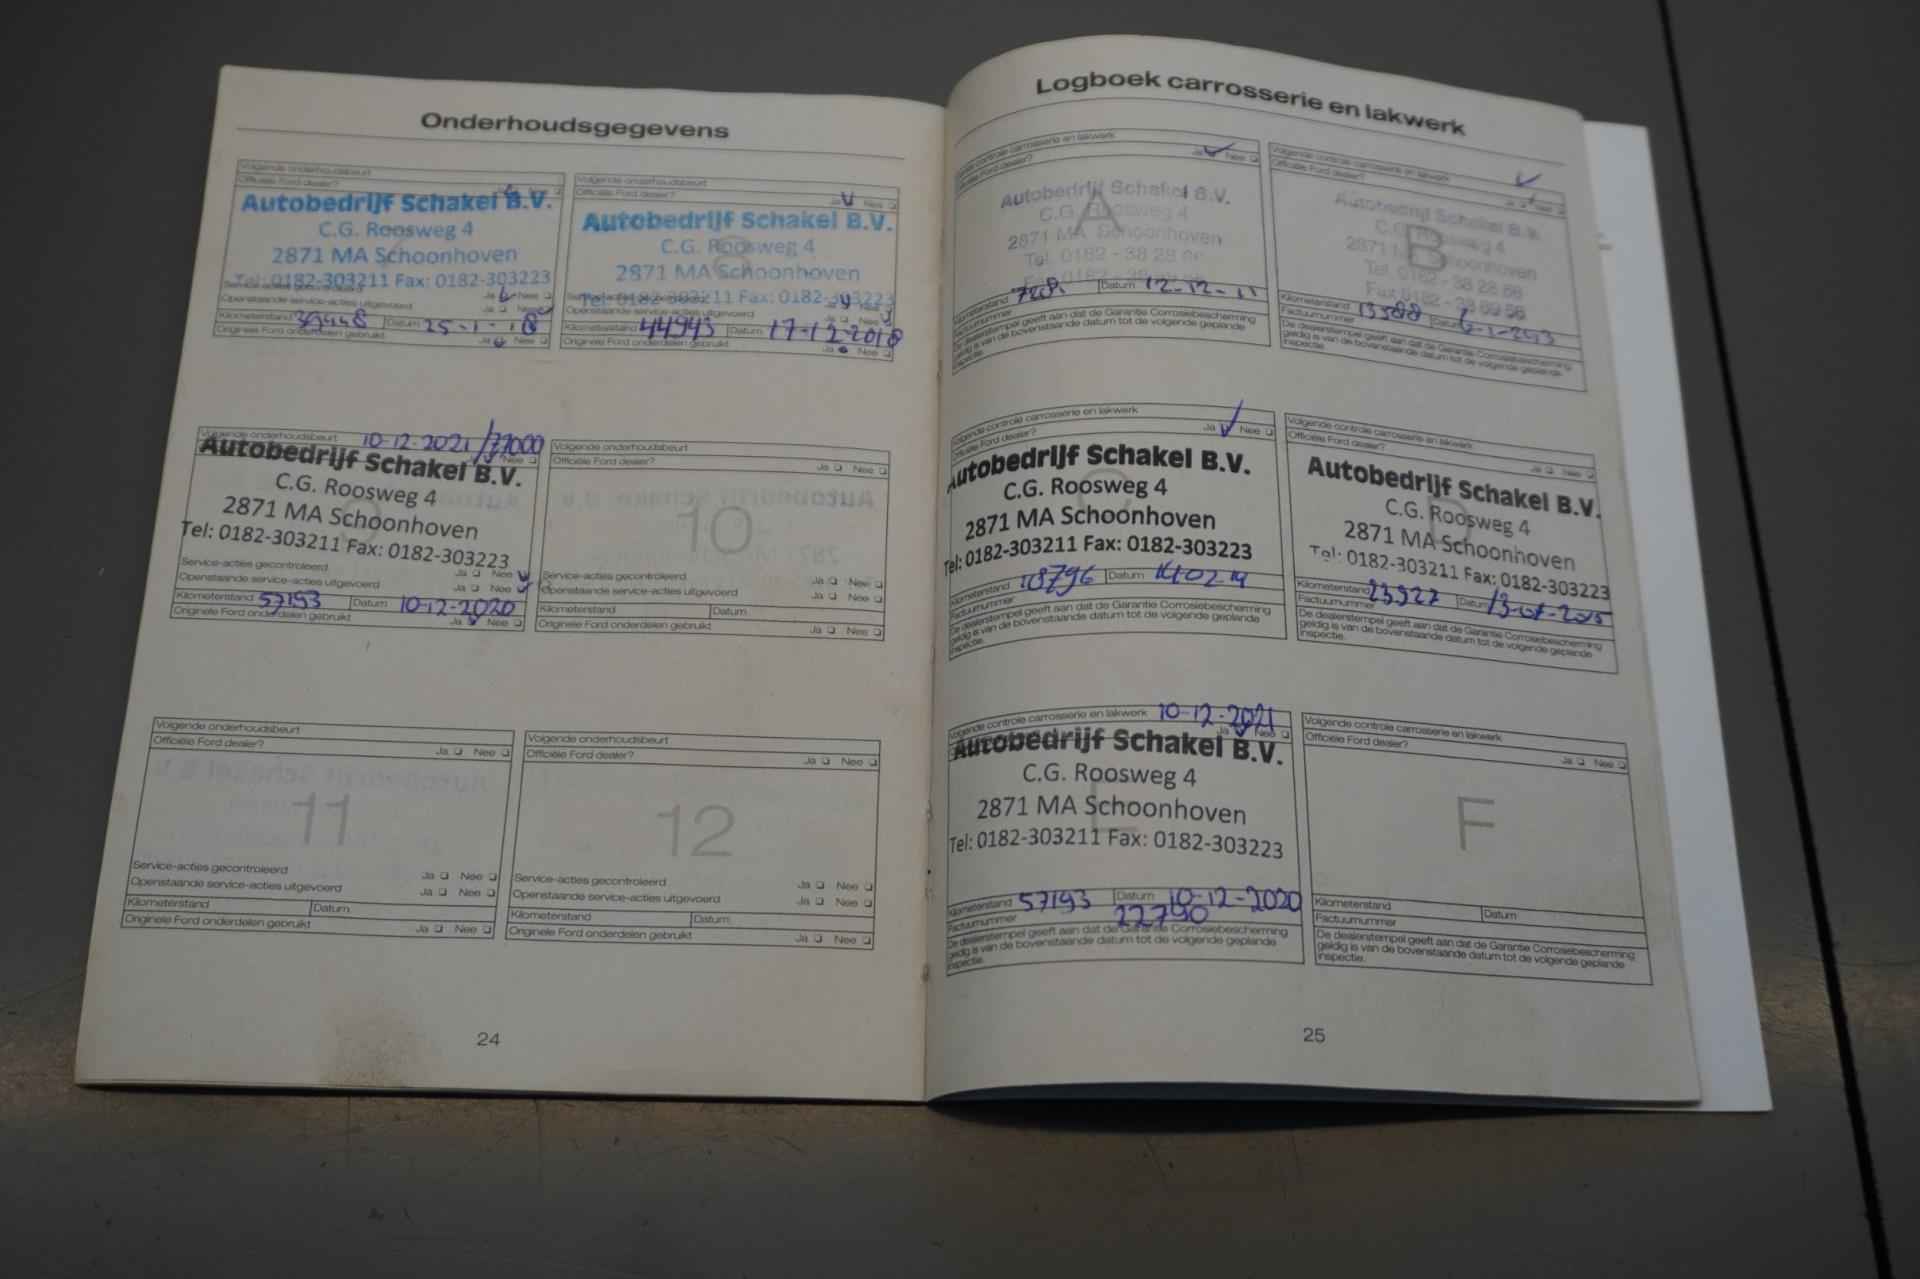 Onderhoudsgegevens
Volgende onderhoudsbeurt
Officiële Ford dealer? Nee
Autobedrijf Schakel B.V.
C.G. Roosweg 4
2871 MA Schoonhoven
Tel: 0182-303211 Fax: 0182-303223
Ja Nee
Openstaande service-acties uitgevoerd
Kilometerstand 39448 Datum 25-1-18
Originele Ford onderdelen gebruikt Ja Nee
Volgende onderhoudsbeurt
Officiële Ford dealer? Ja Nee
Autobedrijf Schakel B.V.
C.G. Roosweg 4
8
2871 MA Schoonhoven
Tel: 0182-303211 Fax: 0182-303223
Openstaande service-acties uitgevoerd Ja Nee
Kilometerstand 44943 Datum 17-12-2018
Originele Ford onderdelen gebruikt Ja Nee
Volgende onderhoudsbeurt 10-12-2021 /77000
Nee
Autobedrijf Schakel B.V.
C.G. Roosweg 4
9
2871 MA Schoonhoven
Tel: 0182-303211 Fax: 0182-303223
Service-acties gecontroleerd Ja Nee
Openstaande service-acties uitgevoerd Ja Nee
Kilometerstand 57193 Datum 10-12-2020
Originele Ford onderdelen gebruikt Ja Nee
Volgende onderhoudsbeurt
Officiële Ford dealer? Ja Nee
10
Service-acties gecontroleerd Ja Nee
Openstaande service-acties uitgevoerd Ja Nee
Kilometerstand Datum
Originele Ford onderdelen gebruikt Ja Nee
Volgende onderhoudsbeurt
Officiële Ford dealer? Ja Nee
11
Service-acties gecontroleerd Ja Nee
Openstaande service-acties uitgevoerd Ja Nee
Kilometerstand Datum
Originele Ford onderdelen gebruikt Ja Nee
Volgende onderhoudsbeurt
Officiële Ford dealer? Ja Nee
12
Service-acties gecontroleerd Ja Nee
Openstaande service-acties uitgevoerd Ja Nee
Kilometerstand Datum
Originele Ford onderdelen gebruikt Ja Nee
24
Logboek carrosserie en lakwerk
Volgende controle carrosserie en lakwerk
Officiële Ford dealer? Ja Nee
Autobedrijf Schakel B.V.
A
C.G. Roosweg 4
2871 MA Schoonhoven
Tel. 0182 - 38 28
Kilometerstand Datum 12-12-11
Factuurnummer
De dealerstempel geeft aan dat de Garantie Corrosiebescherming
geldig is van de bovenstaande datum tot de volgende geplande
inspectie.
Volgende controle carrosserie en lakwerk
Officiële Ford dealer? Ja Nee
Autobedrijf Schakel B.V.
C.G. Roosweg 4
B
2871 MA Schoonhoven
Tel. 0182 - 38 28 68
Fax 0182 - 38 89 56
Kilometerstand 13588 Datum
Factuurnummer
De dealerstempel geeft aan dat de Garantie Corrosiebescherming
geldig is van de bovenstaande datum tot de volgende geplande
inspectie.
Volgende controle carrosserie en lakwerk
Ja Nee
Autobedrijf Schakel B.V.
C
C.G. Roosweg 4
2871 MA Schoonhoven
Tel: 0182-303211 Fax: 0182-303223
Kilometerstand 18796 Datum 14-02-14
Factuurnummer
De dealerstempel geeft aan dat de Garantie Corrosiebescherming
geldig is van de bovenstaande datum tot de volgende geplande
inspectie.
Volgende controle carrosserie en lakwerk
Officiële Ford dealer? Ja Nee
Autobedrijf Schakel B.V.
C.G. Roosweg 4
D
2871 MA Schoonhoven
Tel: 0182-303211 Fax: 0182-303223
Kilometerstand 23927 Datum 13-01-2015
Factuurnummer
De dealerstempel geeft aan dat de Garantie Corrosiebescherming
geldig is van de bovenstaande datum tot de volgende geplande
inspectie.
Volgende controle carrosserie en lakwerk 10-12-2021
Ja Nee
Autobedrijf Schakel B.V.
C.G. Roosweg 4
E
2871 MA Schoonhoven
Tel: 0182-303211 Fax: 0182-303223
Kilometerstand 57193 Datum 10-12-2020
Factuurnummer 22790
De dealerstempel geeft aan dat de Garantie Corrosiebescherming
geldig is van de bovenstaande datum tot de volgende geplande
inspectie.
Volgende controle carrosserie en lakwerk
Officiële Ford dealer? Ja Nee
F
Kilometerstand Datum
Factuurnummer
De dealerstempel geeft aan dat de Garantie Corrosiebescherming
geldig is van de bovenstaande datum tot de volgende geplande
inspectie.
25